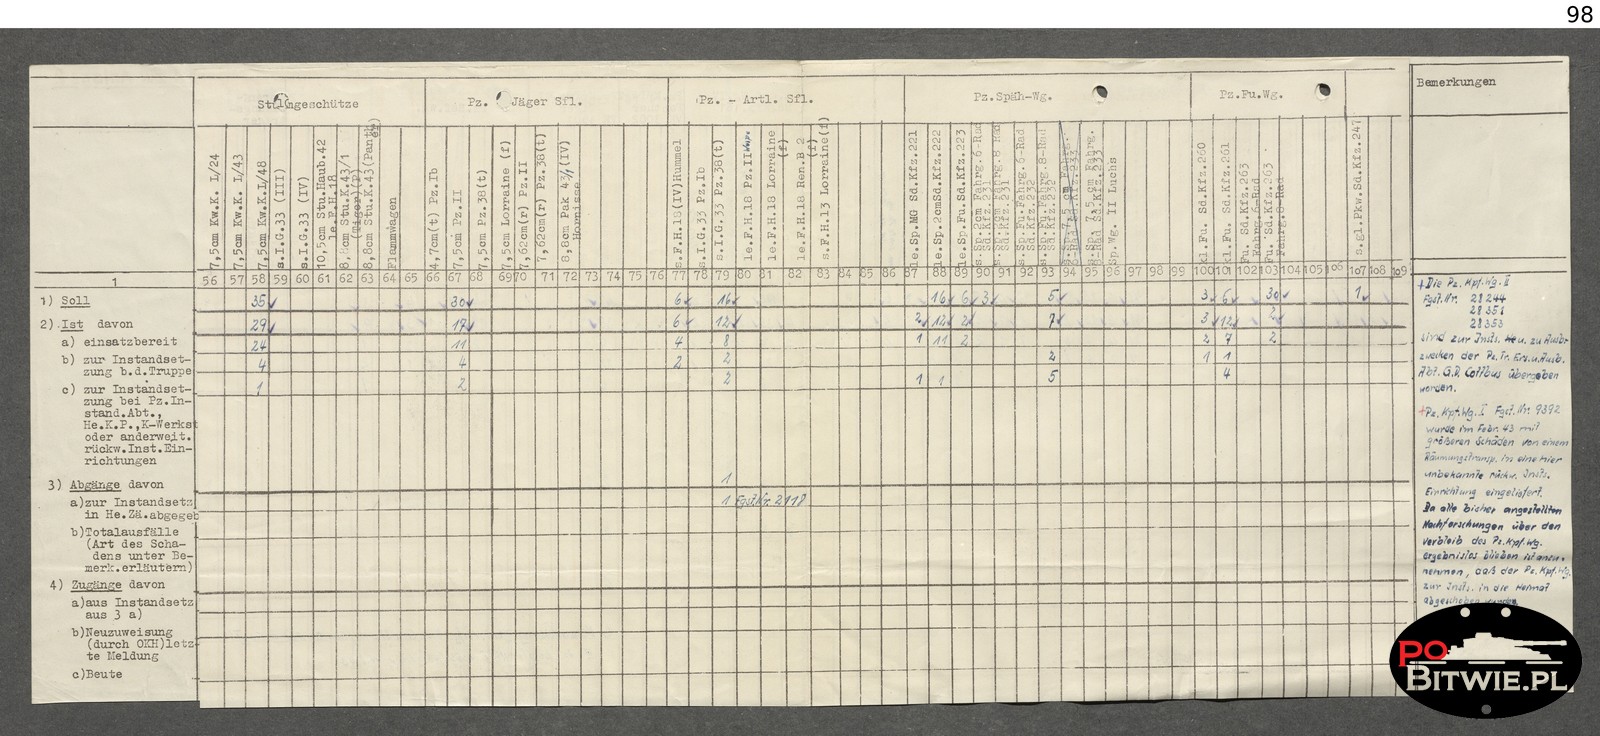 98
Sturmgeschütze
Pz. Jäger Sfl.
Pz. - Artl. Sfl.
Pz.Späh-Wg.
Pz.Fu.Wg.
Bemerkungen
7,5cm Kw.K. L/24
7,5cm Kw.K. L/43
7,5cm Kw.K.L/48
s.I.G.33 (III)
s.I.G.33 (IV)
10,5cm Stu.Haub.42
le.F.H.18
8,8cm Stu.K.43/1
(Tiger)(P)
8,8cm Stu.K.43(Panth
Flammwagen
4,7cm(t) Pz.Ib
7,5cm Pz.II
7,5cm Pz.38(t)
7,5cm Lorraine (f)
7,62cm(r) Pz.II
7,62cm(r) Pz.38(t)
8,8cm Pak 43/1(IV)
Hornisse
s.F.H.18(IV)Hummel
s.I.G.33 Pz.Ib
s.I.G.33 Pz.38(t)
le.F.H.18 Pz.II Wespe
le.F.H.18 Lorraine
(f)
le.F.H.18 Ren.B 2
(f)
s.F.H.13 Lorraine(f)
le.Sp.MG Sd.Kfz.221
le.Sp.2cmSd.Kfz.222
le.Sp.Fu.Sd.Kfz.223
s.Sp.2cm Fahrg.6-Rad
Sd.Kfz.231
s.Sp.2cm Fahrg.8 Rad
Sd.Kfz.231
s.Sp.Fu.Fahrg.6-Rad
Sd.Kfz.232
s.Sp.Fu.Fahrg.8-Rad
Sd.Kfz.232
s.Sp.7,5 cm Fahrg.
6-Rad Sd.Kfz.233
s.Sp. 7,5 cm Fahrg.
8-Rad Sd.Kfz.233
Sp.Wg. II Luchs
kl.Fu. Sd.Kfz.260
kl.Fu. Sd.Kfz.261
Fu. Sd.Kfz.263
Fahrg.6-Rad
Fu. Sd.Kfz.263
Fahrg.8-Rad
s.gl.Pkw.Sd.Kfz.247
1 56 57 58 59 60 61 62 63 64 65 66 67 68 69 70 71 72 73 74 75 76 77 78 79 80 81 82 83 84 85 86 87 88 89 90 91 92 93 94 95 96 97 98 99 100 101 102 103 104 105 106 107 108 109
1) Soll 35 30 6 16 16 6 3 5 3 6 30 1
2) Ist davon 29 17 6 12 2 12 2 7 3 12 2
a) einsatzbereit 24 11 4 8 1 11 2 2 7 2
b) zur Instandset- 4 4 2 2 2 1 1
zung b.d.Truppe
c) zur Instandset- 1 2 2 1 1 5 4
zung bei Pz.In-
stand.Abt.,
He.K.P.,K-Werkst
oder anderweit.
rückw.Inst.Ein-
richtungen
3) Abgänge davon 1
a)zur Instandsetz 1 Fgst.Nr. 2118
in He.Zä.abgegeb
b)Totalausfälle
(Art des Scha-
dens unter Be-
merk.erläutern)
4) Zugänge davon
a)aus Instandsetz
aus 3 a)
b)Neuzuweisung
(durch OKH)letz-
te Meldung
c)Beute
+Die Pz.Kpf.Wg. II
Fgst.Nr. 28 244
28 351
28 353
sind zur Inst. u. zu Ausb.
zwecken der Pz.Tr.Ers.u.Ausb.
Abt. G.D. Cottbus übergeben
worden.
+Pz.Kpf.Wg. I Fgst.Nr. 9392
wurde im Febr. 43 mit
größeren Schäden von einem
Räumungstransp. in eine hier
unbekannte rückw. Inst.
Einrichtung eingeliefert.
Da alle bisher angestellten
Nachforschungen über den
Verbleib des Pz.Kpf.Wg.
ergebnislos blieben ist anzu-
nehmen, daß der Pz.Kpf.Wg.
zur Inst. in die Heimat
abgeschoben wurde.
PO
BITWIE.PL